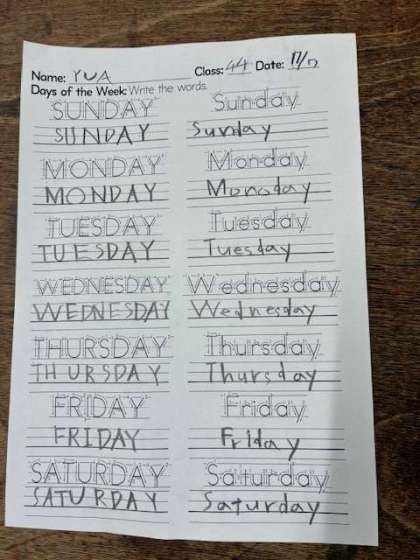 Name: YUA Class: 44 Date: 17/7
Days of the Week: Write the words.
SUNDAY Sunday
SUNDAY Sunday
MONDAY Monday
MONDAY Monday
TUESDAY Tuesday
TUESDAY Tuesday
WEDNESDAY Wednesday
WEDNESDAY Wednesday
THURSDAY Thursday
THURSDAY Thursday
FRIDAY Friday
FRIDAY Friday
SATURDAY Saturday
SATURDAY Saturday